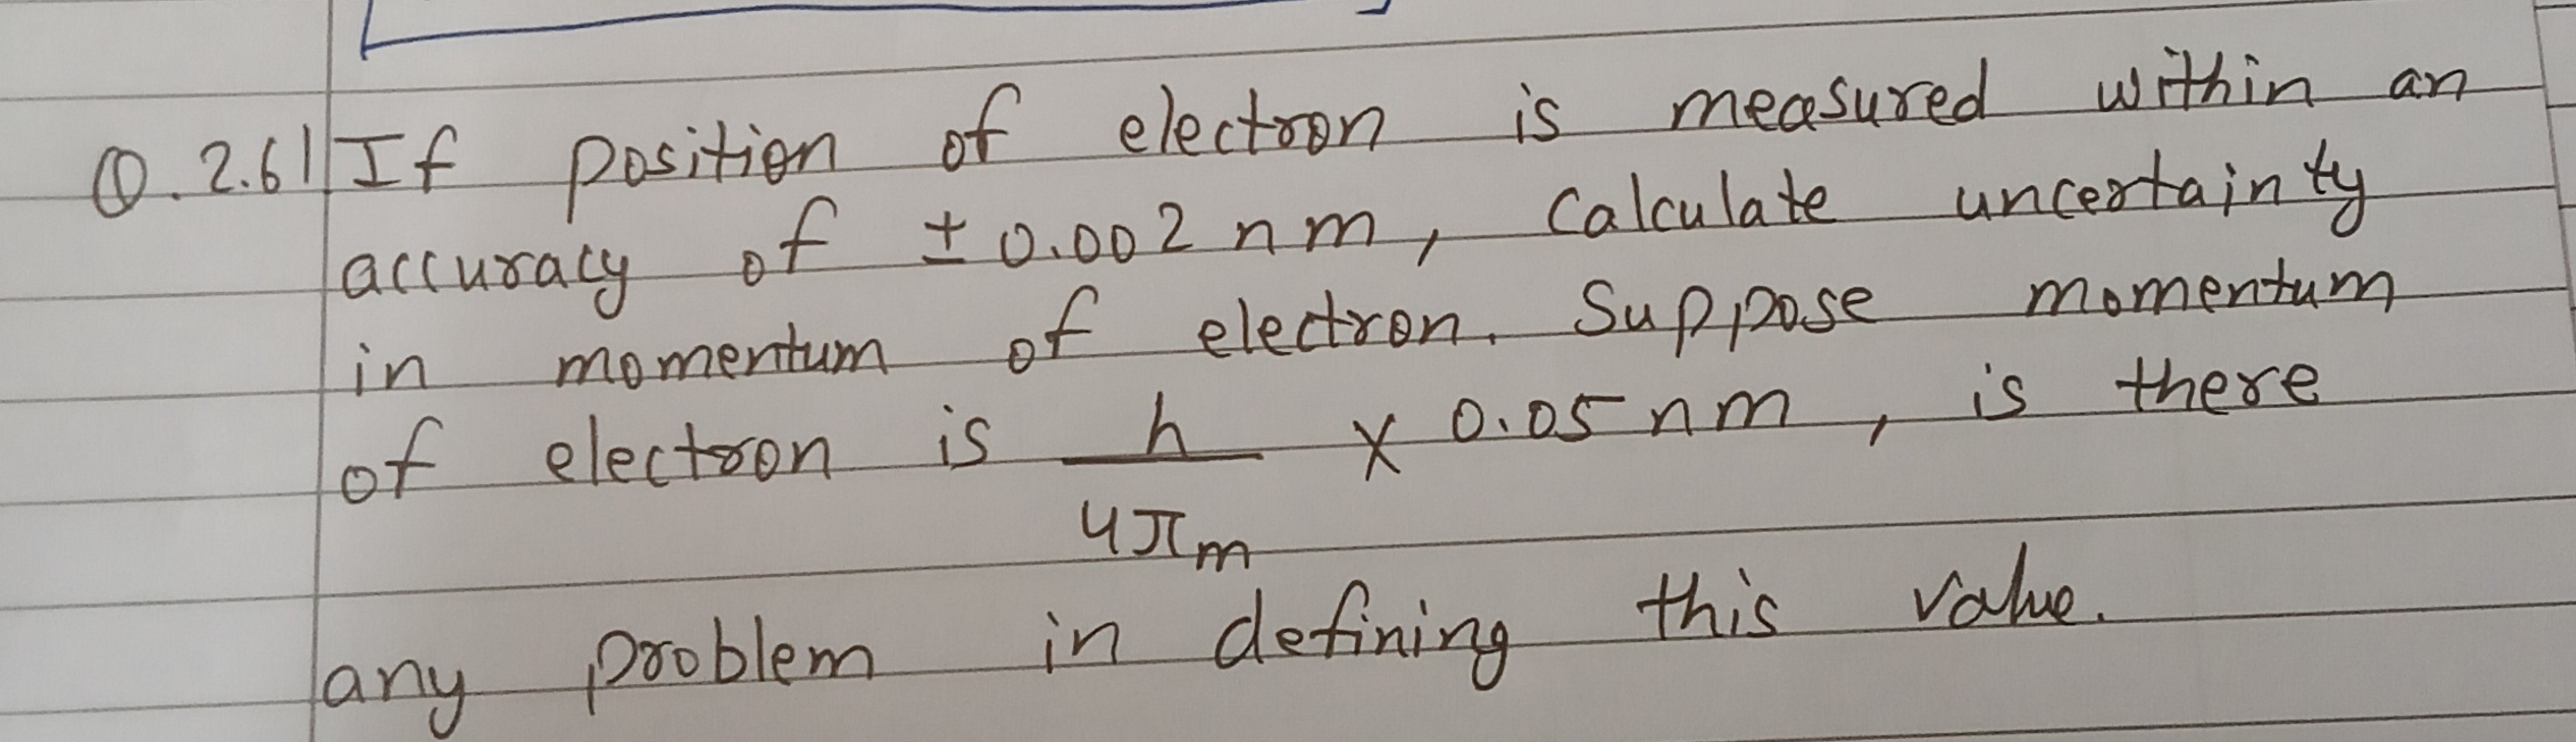 Q.2.61 If position of electron is measured within an
accuracy of ± 0.002 nm, Calculate uncertainty
in momentum of electron. Suppose momentum
of electron is h/4πm × 0.05 nm, is there
any problem in defining this value.